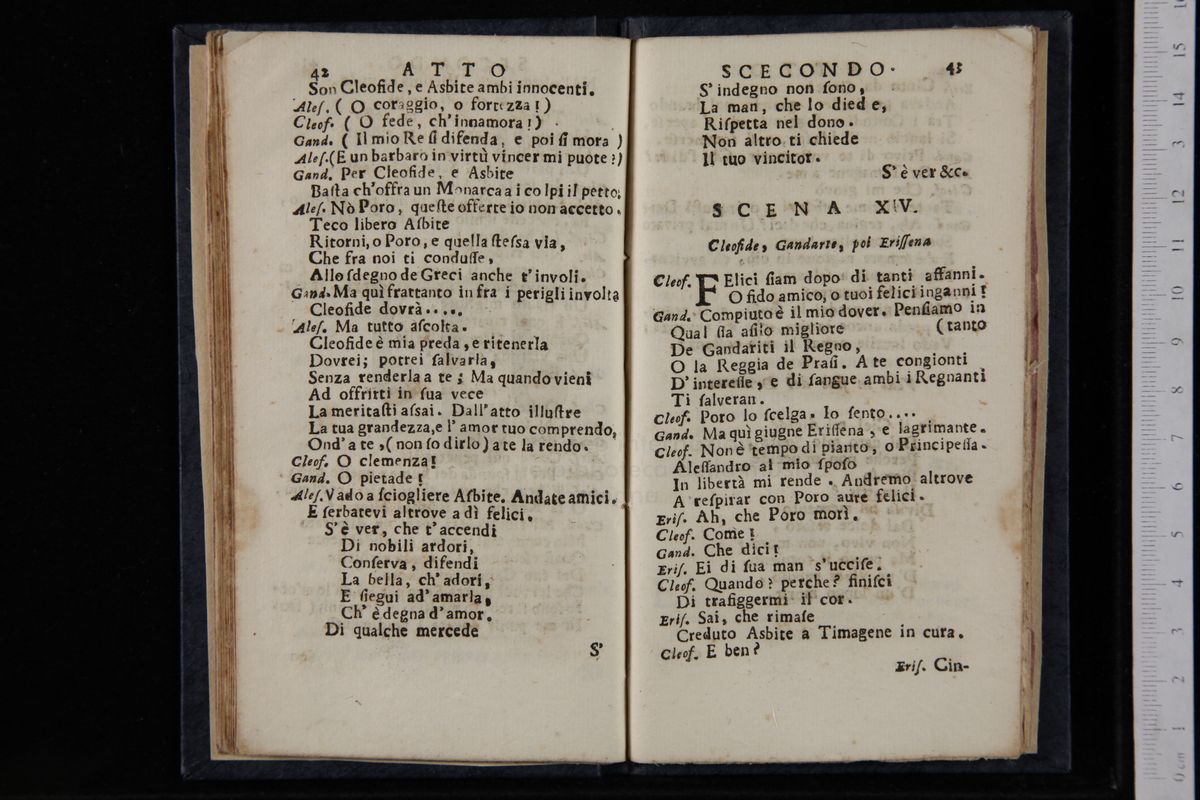 42 ATTO
Son Cleofide, e Asbite ambi innocenti.
Aleſ. ( O coraggio, o fortezza! )
Cleof. ( O fede, ch'innamora! )
Gand. ( Il mio Re ſi difenda, e poi ſi mora )
Aleſ. (E un barbaro in virtù vincer mi puote?)
Gand. Per Cleofide, e Asbite
Baſta ch'offra un Monarca a i colpi il petto;
Aleſ. Nò Poro, queſte offerte io non accetto.
Teco libero Aſbite
Ritorni, o Poro, e quella ſteſsa via,
Che fra noi ti conduſſe,
Allo ſdegno de Greci anche t'involi.
Gand. Ma quì frattanto in fra i perigli involta
Cleofide dovrà.....
Aleſ. Ma tutto aſcolta.
Cleofide è mia preda, e ritenerla
Dovrei; potrei ſalvarla,
Senza renderla a te; Ma quando vieni
Ad offrirti in ſua vece
La meritaſti aſsai. Dall'atto illuſtre
La tua grandezza, e l'amor tuo comprendo,
Ond'a te, (non ſo dirlo) a te la rendo.
Cleof. O clemenza!
Gand. O pietade!
Aleſ. Vado a ſciogliere Aſbite. Andate amici.
E ſerbatevi altrove a dì felici.
S'è ver, che t'accendi
Di nobili ardori,
Conſerva, difendi
La bella, ch'adori,
E ſiegui ad'amarla,
Ch' è degna d'amor.
Di qualche mercede
S'
SCECONDO. 43
S'indegno non ſono,
La man, che lo diede,
Riſpetta nel dono.
Non altro ti chiede
Il tuo vincitor.
S'è ver &c.
SCENA XIV.
Cleofide, Gandarte, poi Eriſſena
Cleof. FElici ſiam dopo di tanti affanni.
O fido amico, o tuoi felici inganni!
Gand. Compiuto è il mio dover. Penſiamo in
Qual ſia aſilo migliore (tanto
De Gandariti il Regno,
O la Reggia de Praſi. A te congionti
D'intereſſe, e di ſangue ambi i Regnanti
Ti ſalveran.
Cleof. Poro lo ſcelga. Io ſento....
Gand. Ma quì giugne Eriſſena, e lagrimante.
Cleof. Non è tempo di pianto, o Principeſſa.
Aleſſandro al mio ſpoſo
In libertà mi rende. Andremo altrove
A reſpirar con Poro aure felici.
Eriſ. Ah, che Poro morì.
Cleof. Come!
Gand. Che dici!
Eriſ. Ei di ſua man s'ucciſe.
Cleof. Quando? perche? finiſci
Di trafiggermi il cor.
Eriſ. Sai, che rimaſe
Creduto Asbite a Timagene in cura.
Cleof. E ben?
Eriſ. Cin-